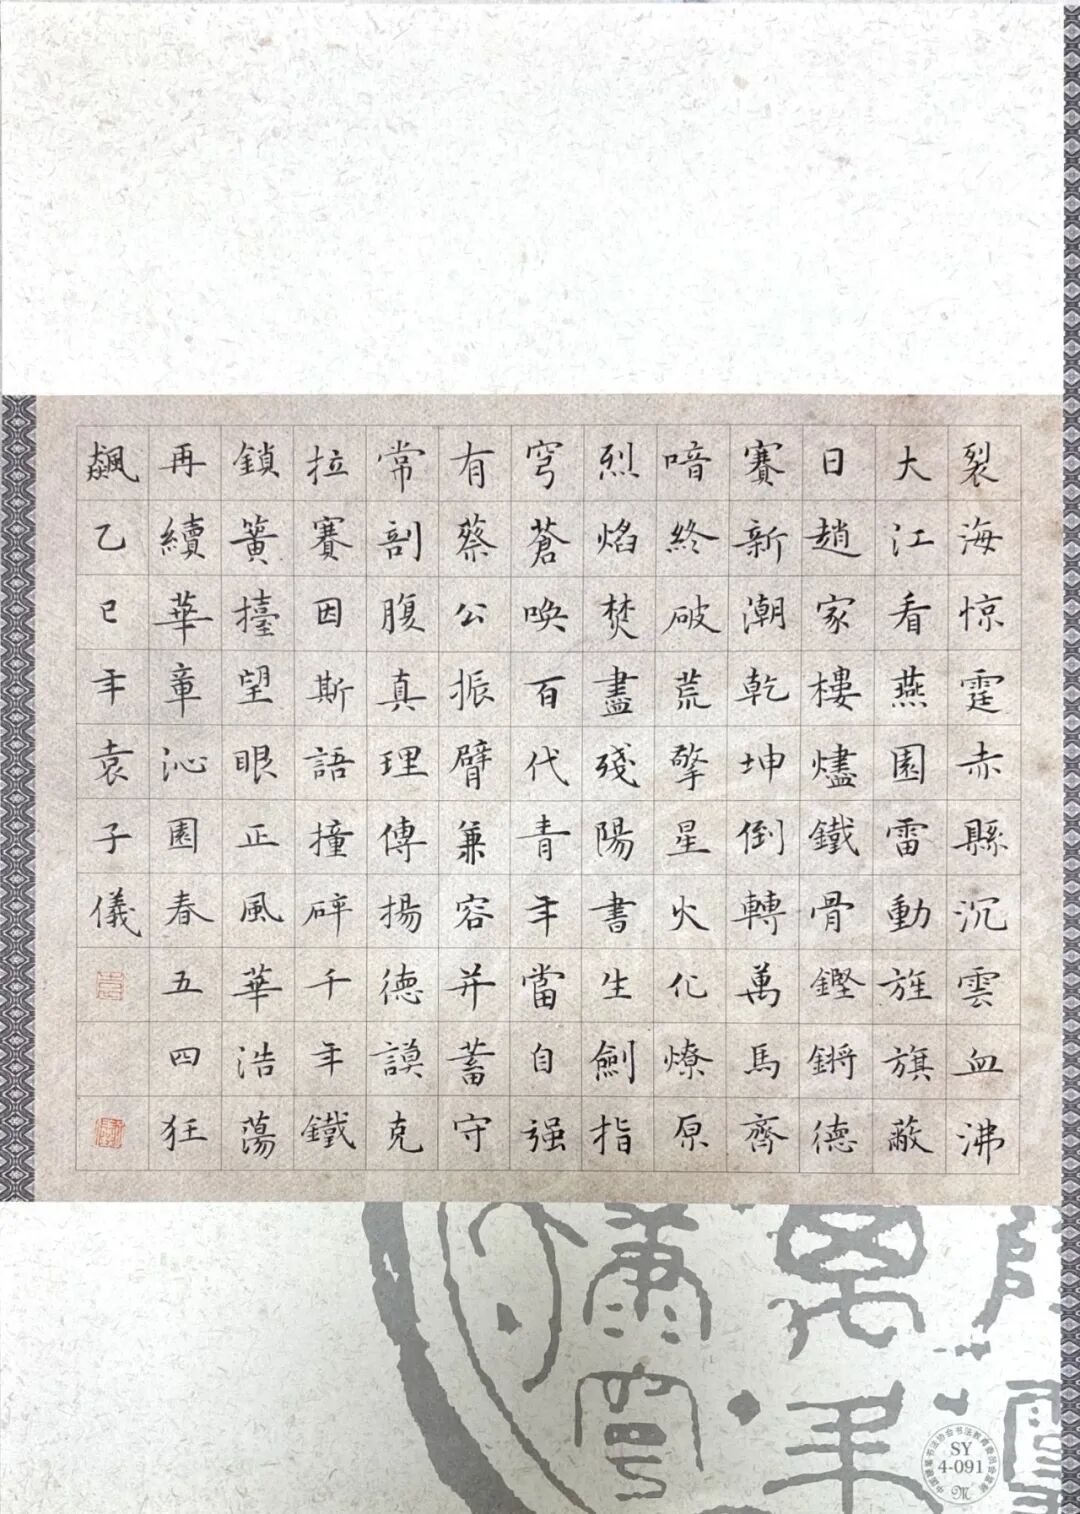 裂海惊霆赤縣沉雲血沸
大江看燕園雷動旌旗蔽
日趙家樓燼鐵骨鏗鏘德
賽新潮乾坤倒轉萬馬齊
喑終破荒擎星火化燎原
烈焰焚盡殘陽書生劍指
穹蒼喚百代青年當自强
有蔡公振臂兼容并蓄守
常剖腹真理傳揚德謨克
拉賽因斯語撞碎千年鐵
鎖簧擡望眼正風華浩蕩
再續華章沁園春五四狂
飆乙巳年袁子儀
中国硬笔书法协会书法教育委员会监制
SY
4-091